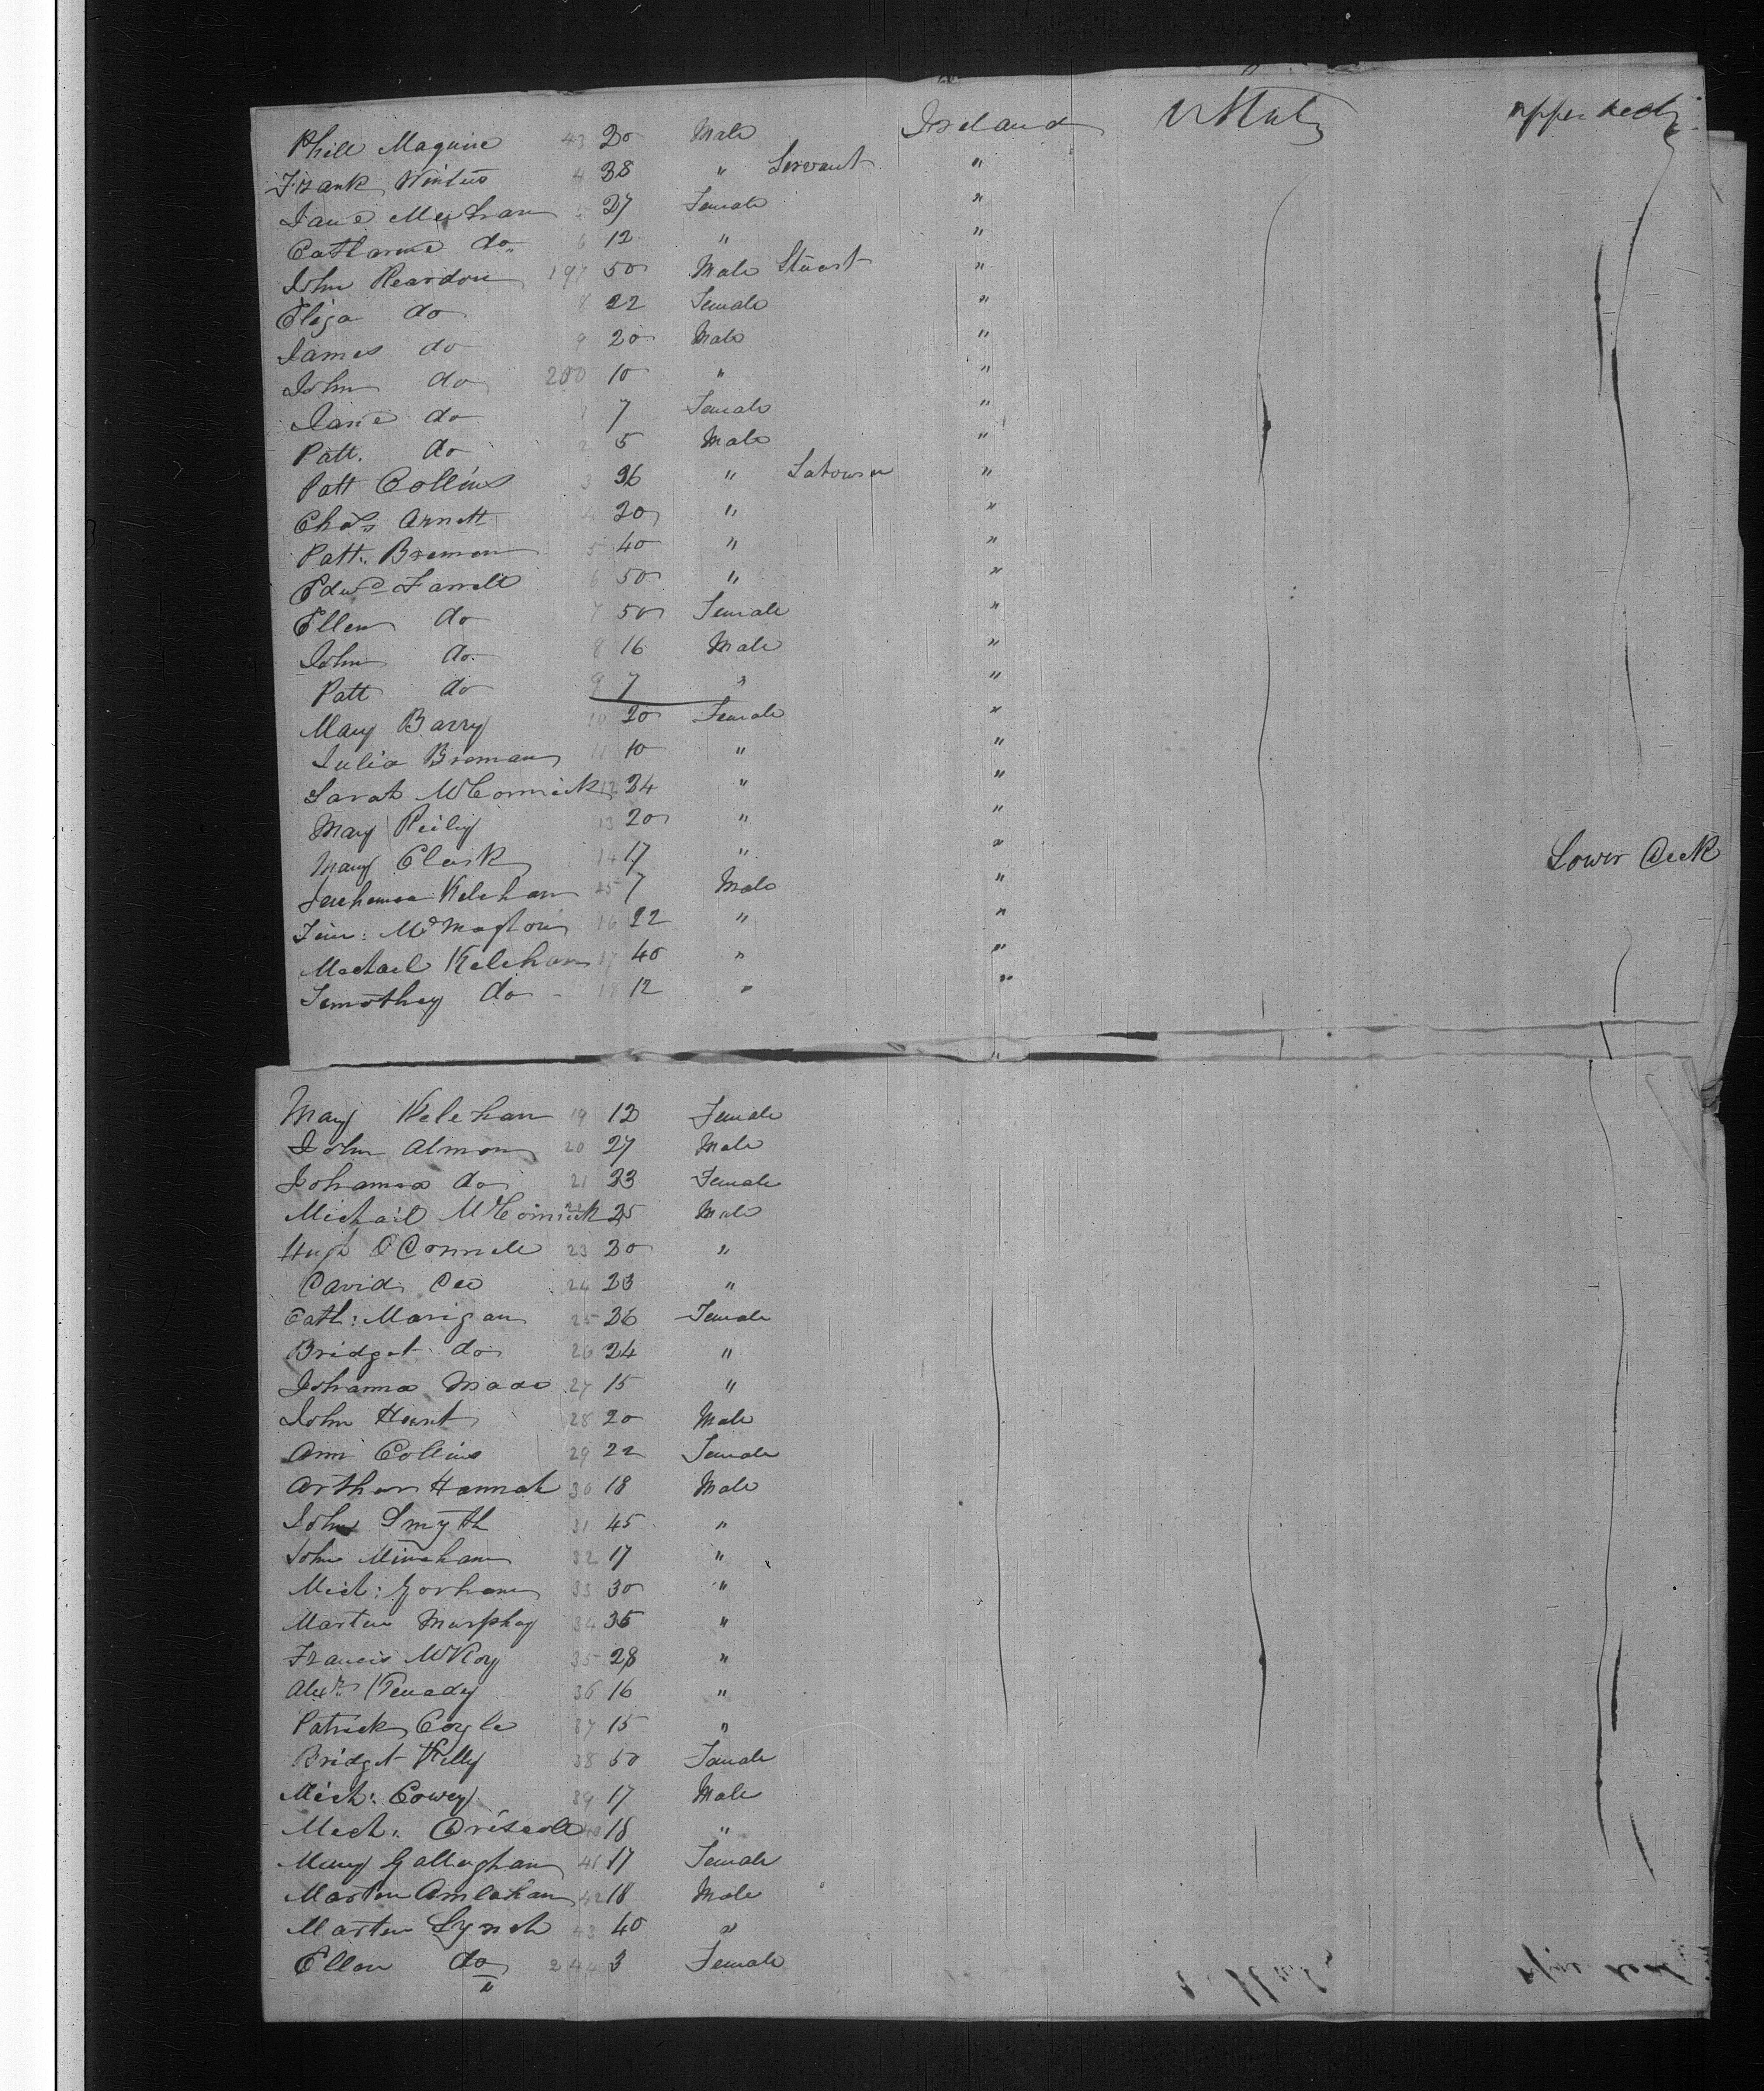 Phill Maguire 43 20 Male Ireland U States upper deck
Frank Winters 4 38 " Servant "
Jane Meehan 5 27 Female "
Catharine do 6 12 " "
John Reardon 197 50 Male Stuart "
Eliza do 8 22 Female "
James do 9 20 Male "
John do 200 10 " "
Jane do 1 7 Female "
Patt. do 2 5 Male "
Patt Collins 3 36 " Labourer "
Chas Arnott 4 20 " "
Patt. Brennan 5 40 " "
Edwd Farrell 6 50 " "
Ellen do 7 50 Female "
John do 8 16 Male "
Patt do 9 7 " "
Mary Barry 10 20 Female "
Julia Brennan 11 10 " "
Sarah McCormick 12 24 " "
Mary Reily 13 20 " "
Mary Clark 14 17 " " Lower Deck
Kelehan 15 7 Male "
16 22 " "
Michael Kelehan 17 40 " "
Timothey do 18 12 " "
"
Mary Kelehan 19 12 Female
John Almon 20 27 Male
Johanna do 21 23 Female
Michail McCormick 22 25 Male
Hugh O'Connell 23 20 "
David Dee 24 23 "
Cath: Marigan 25 26 Female
Bridget do 26 24 "
Johanna 27 15 "
John Hunt 28 20 Male
Ann Collins 29 22 Female
Arthur Hannah 30 18 Male
John Smyth 31 45 "
John Minehan 32 17 "
Mich: Gorham 33 30 "
Martin Murphey 34 35 "
Francis McKoy 35 28 "
Alexr Kenady 36 16 "
Patrick Coyle 37 15 "
Bridget Kelly 38 50 Female
Mich: Cowey 39 17 Male
Mich: Driscoll 40 18 "
Mary Gallaghan 41 17 Female
Martin 42 18 Male
Martin Lynch 43 40 "
Ellen do 244 3 Female